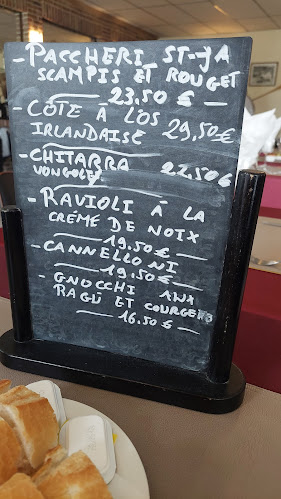 - PACCHERI ST-JA
SCAMPIS ET ROUGET
23.50 €
- CÔTE À L'OS
IRLANDAISE 29,50 €
- CHITARRA 22.50 €
VONGOLE
- RAVIOLI À LA
CRÈME DE NOIX
19.50 €
- CANNELLONI
19.50 €
- GNOCCHI AUX
RAGÙ ET COURGETTES
16.50 €